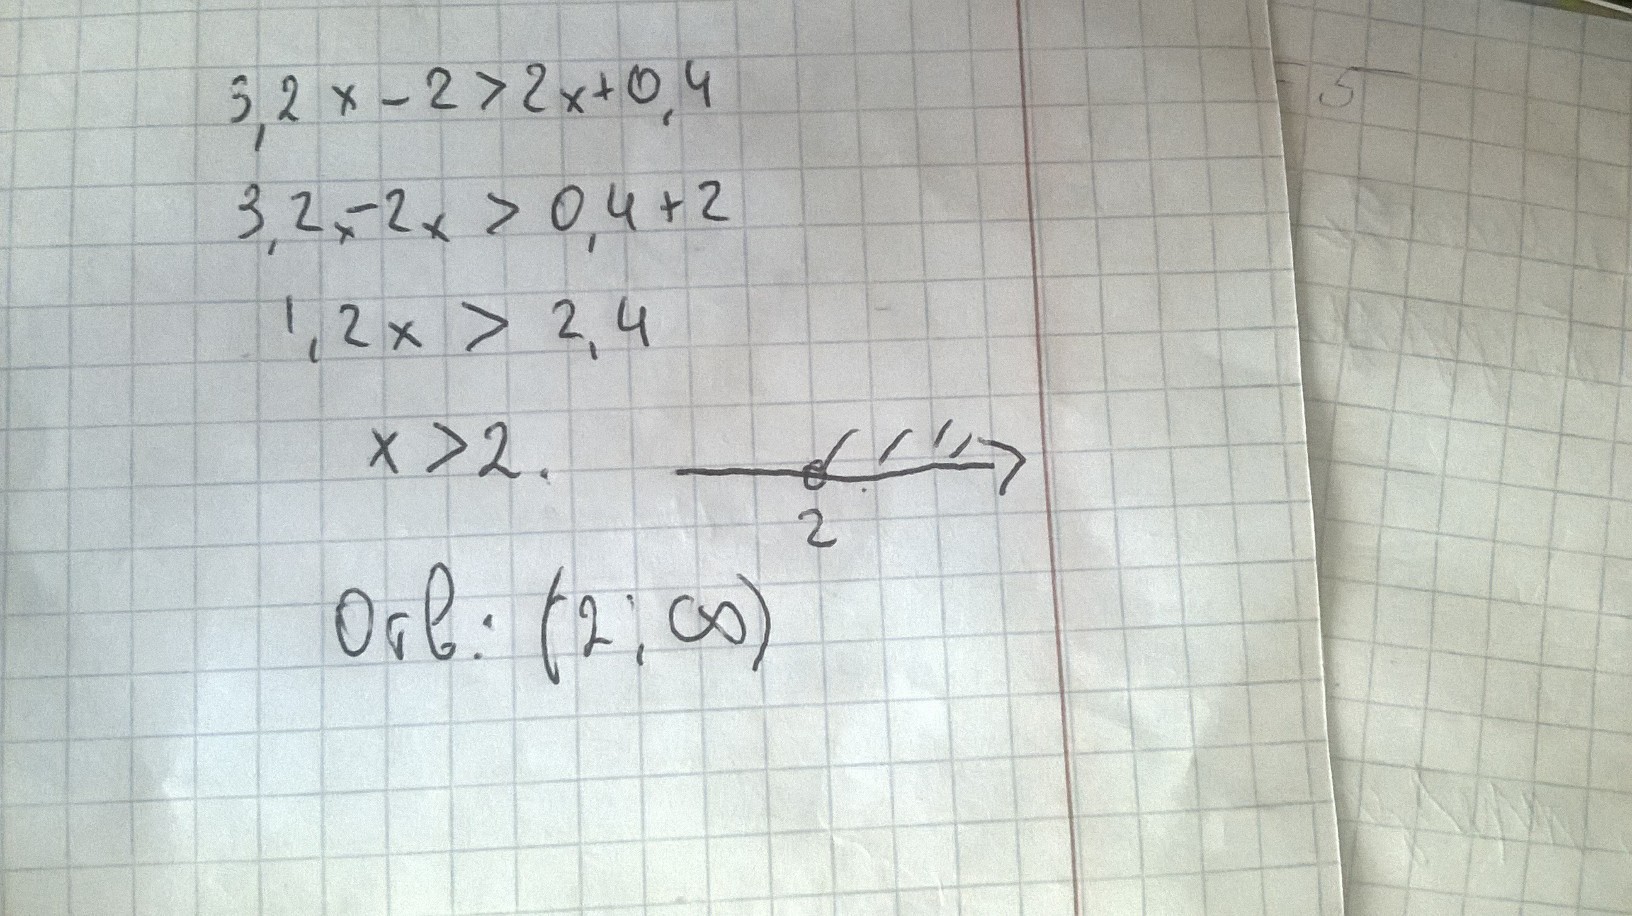 3,2x-2>2x+0,4
3,2x-2x > 0,4+2
1,2x > 2,4
x>2.
2
Отв: (2; ∞)
5